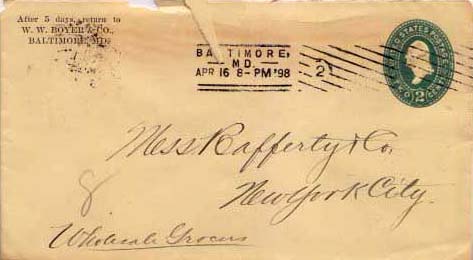 After 5 days, return to
W. W. BOYER & CO.,
BALTIMORE, MD.
BALTIMORE,
MD.
APR 16 8-PM '98
2
UNITED STATES POSTAGE
2
TWO CENTS
Mess Rafferty & Co.
New York City.
Wholesale Grocers